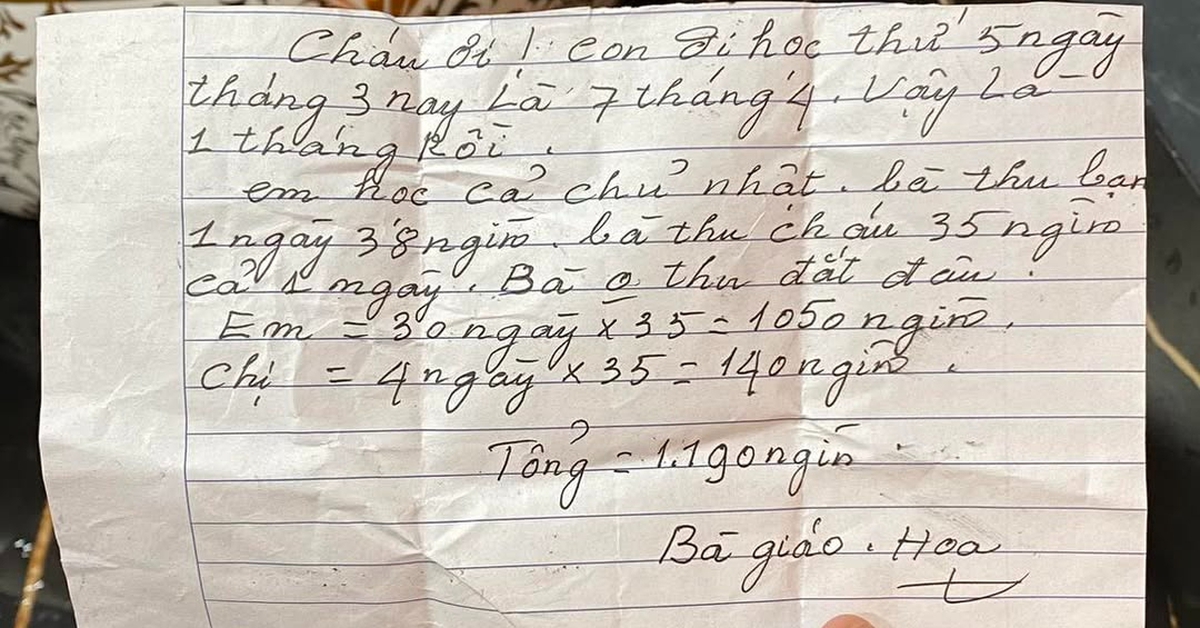 Cháu ơi ! con đi học thứ 5 ngày
tháng 3 nay là 7 tháng 4. Vậy là
1 tháng rồi.
em học cả chủ nhật. bà thu bạn
1 ngày 38 ngìn. bà thu cháu 35 ngìn
cả 1 ngày. Bà o thu đắt đâu.
Em = 30 ngày x 35 = 1050 ngìn.
Chị = 4 ngày x 35 = 140 ngìn.
Tổng = 1.190 ngìn
Bà giáo. Hoa